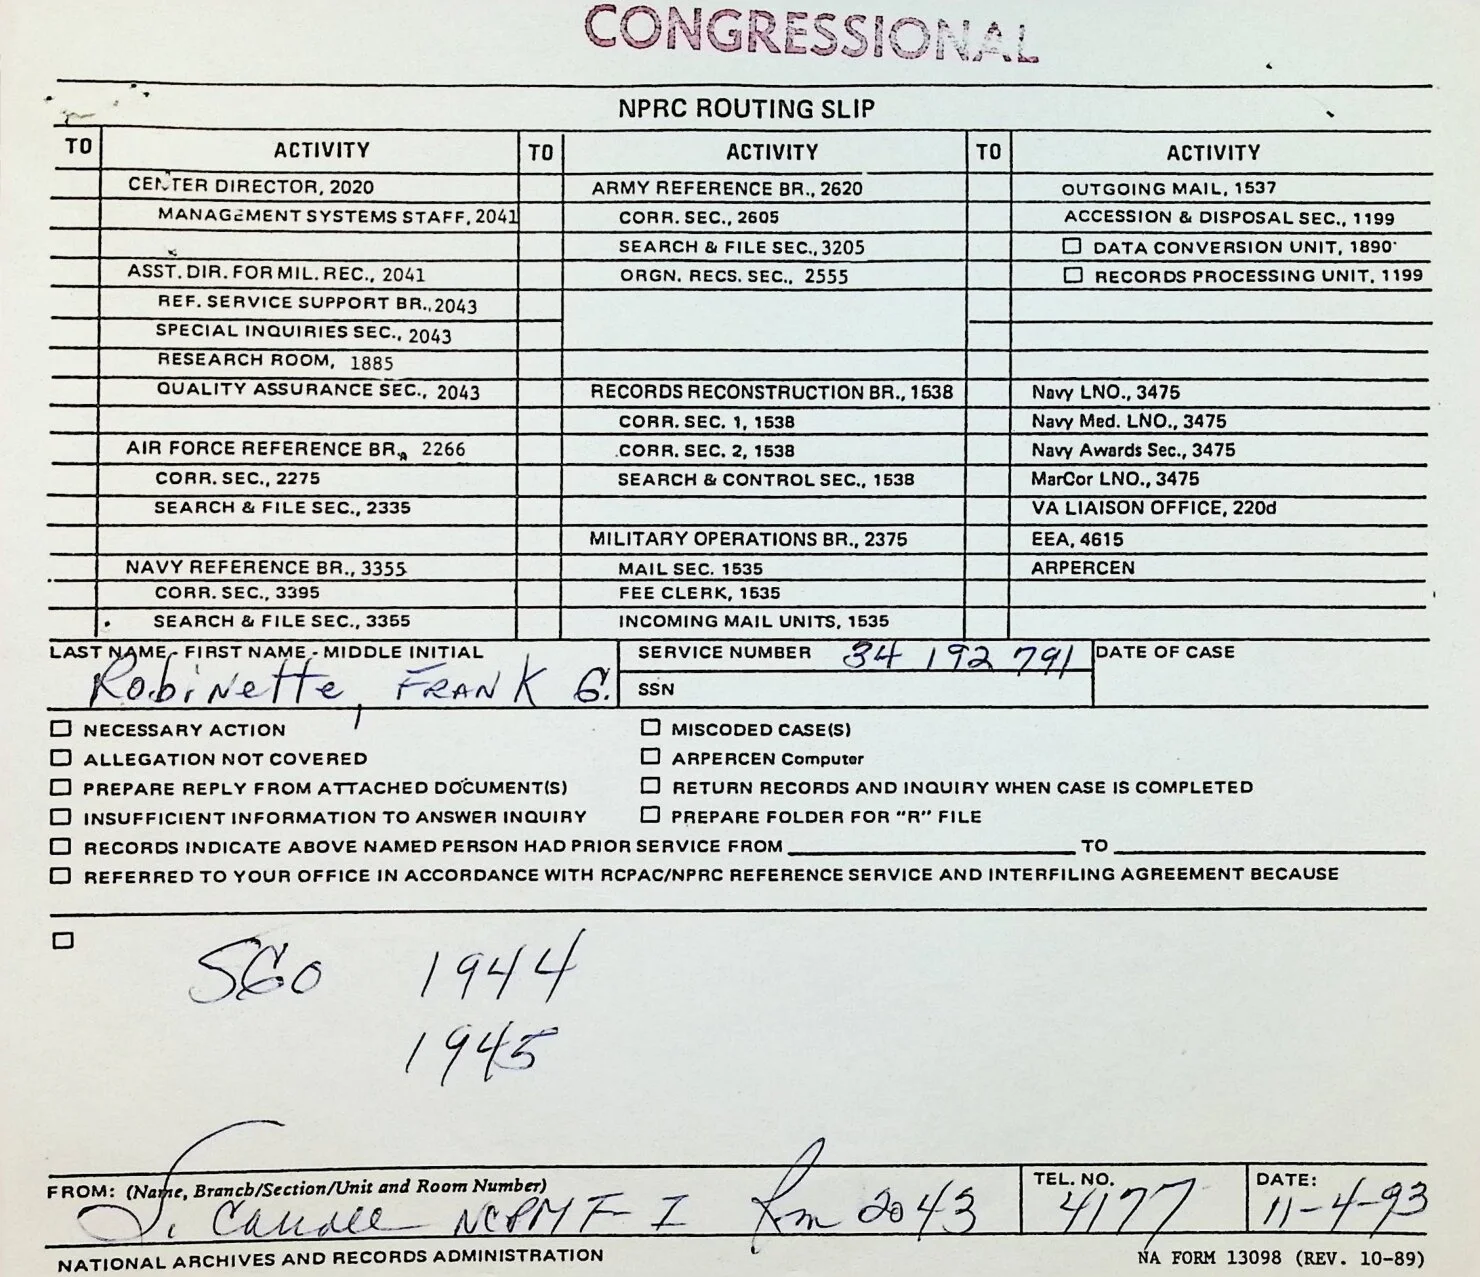 CONGRESSIONAL
NPRC ROUTING SLIP
TO ACTIVITY TO ACTIVITY TO ACTIVITY
CENTER DIRECTOR, 2020 ARMY REFERENCE BR., 2620 OUTGOING MAIL, 1537
MANAGEMENT SYSTEMS STAFF, 2041 CORR. SEC., 2605 ACCESSION & DISPOSAL SEC., 1199
SEARCH & FILE SEC., 3205 DATA CONVERSION UNIT, 1890
ASST. DIR. FOR MIL. REC., 2041 ORGN. RECS. SEC., 2555 RECORDS PROCESSING UNIT, 1199
REF. SERVICE SUPPORT BR., 2043
SPECIAL INQUIRIES SEC., 2043
RESEARCH ROOM, 1885
QUALITY ASSURANCE SEC., 2043 RECORDS RECONSTRUCTION BR., 1538 Navy LNO., 3475
CORR. SEC. 1, 1538 Navy Med. LNO., 3475
AIR FORCE REFERENCE BR., 2266 CORR. SEC. 2, 1538 Navy Awards Sec., 3475
CORR. SEC., 2275 SEARCH & CONTROL SEC., 1538 MarCor LNO., 3475
SEARCH & FILE SEC., 2335 VA LIAISON OFFICE, 220d
MILITARY OPERATIONS BR., 2375 EEA, 4615
NAVY REFERENCE BR., 3355 MAIL SEC. 1535 ARPERCEN
CORR. SEC., 3395 FEE CLERK, 1535
SEARCH & FILE SEC., 3355 INCOMING MAIL UNITS, 1535
LAST NAME - FIRST NAME - MIDDLE INITIAL SERVICE NUMBER 34 192 791 DATE OF CASE
Robinette, FRANK G. SSN
NECESSARY ACTION MISCODED CASE(S)
ALLEGATION NOT COVERED ARPERCEN Computer
PREPARE REPLY FROM ATTACHED DOCUMENT(S) RETURN RECORDS AND INQUIRY WHEN CASE IS COMPLETED
INSUFFICIENT INFORMATION TO ANSWER INQUIRY PREPARE FOLDER FOR "R" FILE
RECORDS INDICATE ABOVE NAMED PERSON HAD PRIOR SERVICE FROM TO
REFERRED TO YOUR OFFICE IN ACCORDANCE WITH RCPAC/NPRC REFERENCE SERVICE AND INTERFILING AGREEMENT BECAUSE
SGO 1944
1945
FROM: (Name, Branch/Section/Unit and Room Number) TEL. NO. DATE:
NCPMF-I Rm 2043 4177 11-4-93
NATIONAL ARCHIVES AND RECORDS ADMINISTRATION NA FORM 13098 (REV. 10-89)